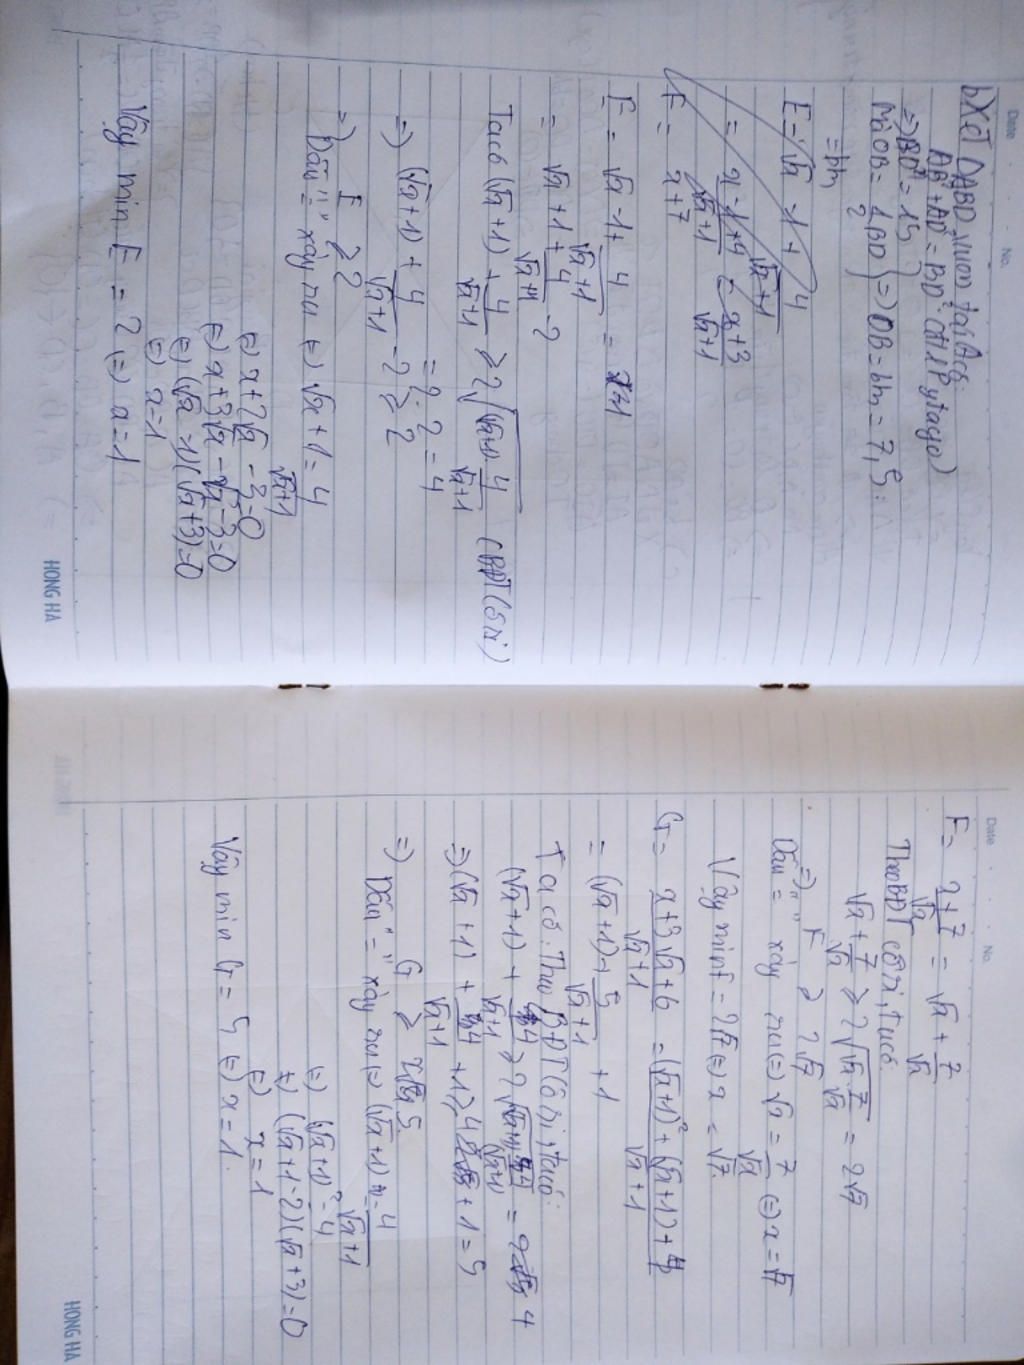 Date No.
b) Xét DABD vuon tại A có:
AB² + AD² = BD² (đ/l Pytago)
=> BD² = 15
Mà OB = 1/2 BD } => OB = bm = 7,5
= bm
E = √x - 1 + 4/(√x+1)
= (x-1+4)/(√x+1) = (x+3)/(√x+1)
F = x+7
E = √x - 1 + 4/(√x+1) =
= √x + 1 + 4/(√x+1) - 2
Ta có (√x+1) + 4/(√x+1) ≥ 2√((√x+1) 4/(√x+1)) (BĐT Cosi)
= 2.2 = 4
=> (√x+1) + 4/(√x+1) - 2 ≥ 2
=> E ≥ 2
Dấu "=" xảy ra <=> √x + 1 = 4/(√x+1)
<=> x + 2√x - 3 = 0
<=> x + 3√x - √x - 3 = 0
<=> (√x - 1)(√x + 3) = 0
<=> x = 1
Vậy min E = 2 <=> x = 1
HONG HA
Date No.
F = (x+7)/√x = √x + 7/√x
Theo BĐT côsi, ta có:
√x + 7/√x ≥ 2√(√x . 7/√x) = 2√7
=> F ≥ 2√7
Dấu "=" xảy ra <=> √x = 7/√x <=> x = √7
Vậy min F = 2√7 <=> x = √7
G = (x+3√x+6)/(√x+1) = ((√x+1)² + (√x+1) + 4)/(√x+1)
= (√x+1) + /(√x+1) + 1
Ta có: Theo BĐT Cosi, ta có:
(√x+1) + 4/(√x+1) ≥ 2√((√x+1) 4/(√x+1)) = 4
=> (√x+1) + 4/(√x+1) + 1 ≥ 4 + 1 = 5
=> G ≥ 5
Dấu "=" xảy ra <=> (√x+1) = 4/(√x+1)
<=> (√x+1)² = 4
<=> (√x+1-2)(√x+3) = 0
<=> x = 1
Vậy min G = 5 <=> x = 1.
HONG HA